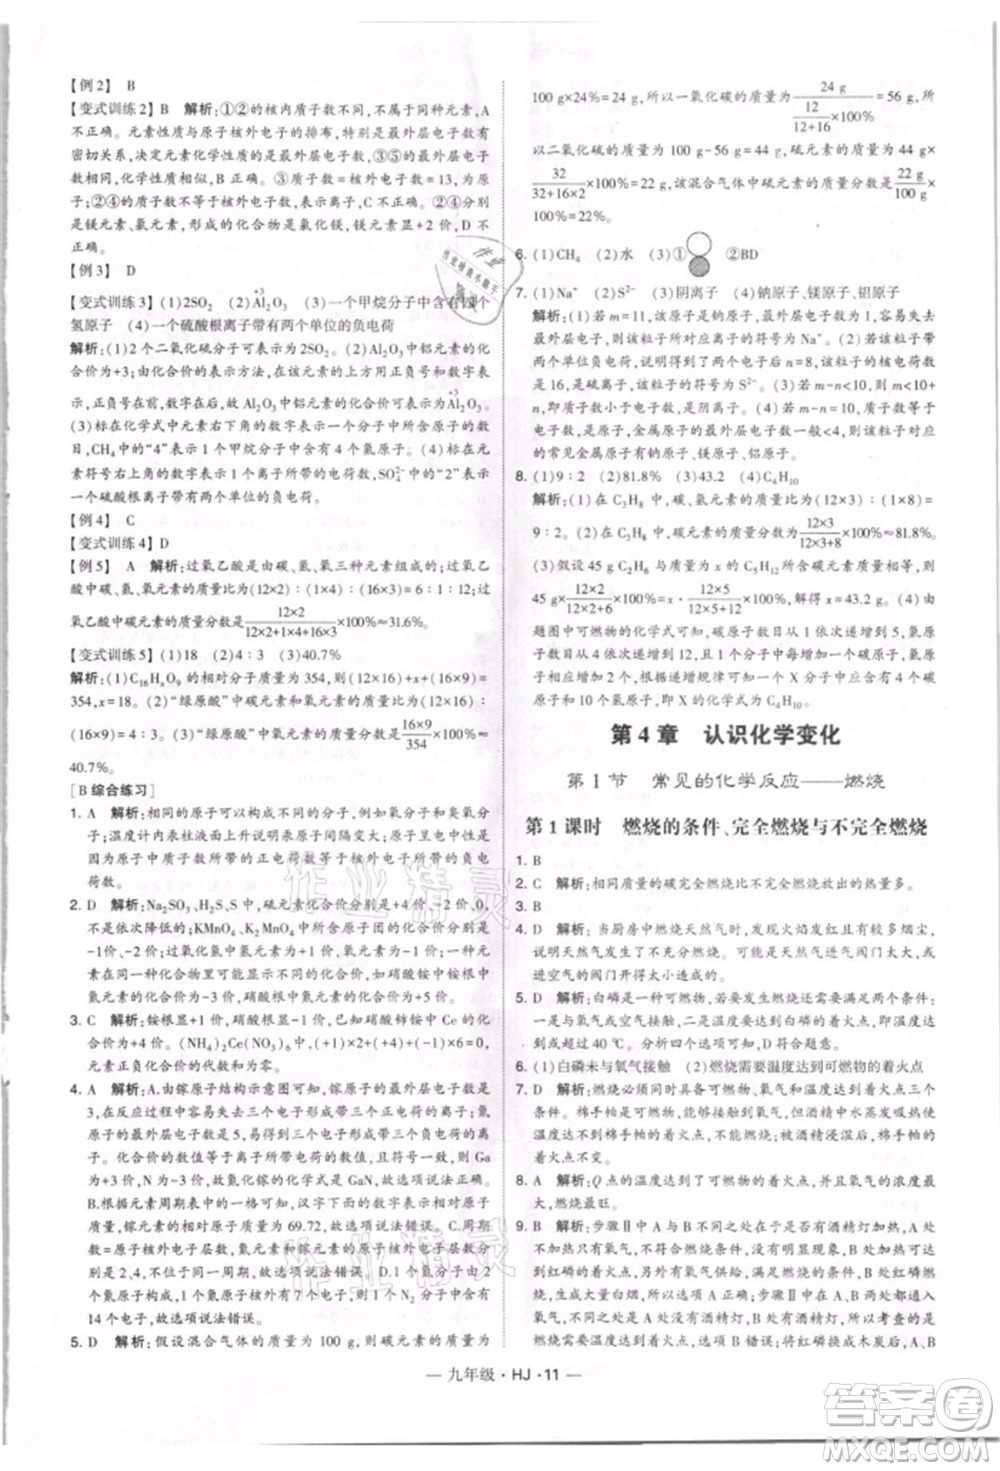 【例2】 B
【变式训练2】 B 解析:①②的核内质子数不同,不属于同种元素,A
不正确。元素性质与原子核外电子的排布,特别是最外层电子数有
密切关系,决定元素化学性质的是原子的最外层电子数,③⑤的最外
层电子数相同,化学性质相似,B 正确。③质子数=核外电子数,为原
子;②④的质子数不等于核外电子数,为离子,C 不正确。②④分别
为镁元素、氯元素,形成的化合物为氯化镁,镁元素为+2价,D 不
正确。
【例3】 D
【变式训练3】 (1)2SO₂ (2)Al₂O₃(+3) (3)一个甲烷分子中含有四个
氢原子 (4)一个硫酸根离子带有两个单位的负电荷
解析:(1)2 个二氧化硫分子可表示为 2SO₂。(2)Al₂O₃ 中铝元素的化
合价为+3价,根据化合价的表示方法,在其化学式该元素的上方用数字表
示,故 Al₂O₃ 中铝元素的化合价为+3价可表示为Al₂O₃(+3)。
(3)标在化学式中元素右下角的数字表示一个分子中所含原子的个
数,CH₄ 中的“4”表示 1 个甲烷分子中含有 4 个氢原子。(4)标在元
素符号右上角的数字表示 1 个离子所带的电荷数,SO₄²⁻ 中的“2”表示
1 个硫酸根离子带有 2 个单位的负电荷。
【例4】 C
【变式训练4】 D
【例5】 A 解析:过氧乙酸是由碳、氢、氧三种元素组成的;过氧乙
酸中碳、氢、氧元素的质量比为(12×2):(1×4):(16×3)=6:1:12;过
氧乙酸中碳元素的质量分数为12×2/(12×2+1×4+16×3)×100%≈31.6%。
【变式训练5】 (1)18 (2)4:3 (3)40.7%
解析:(1)C₁₆HₓO₉ 的相对分子质量为 354,则(12×16)+x+(16×9)=
354,x=18。(2)“绿原酸”中碳元素和氧元素的质量比为(12×16):
(16×9)=4:3。(3)“绿原酸”中氧元素的质量分数为(16×9)/354×100%≈
40.7%。
[B 综合练习]
1. A 解析:相同的原子可以构成不同的分子,例如氧分子和臭氧分
子;温度计内汞柱液面上升说明汞原子间隔变大;原子呈电中性的
原因是质子所带的电荷总数与核外电子所带的电荷总数相等,电性
相反;原子中质子数等于核外电子数,但质子数不一定等于核电
荷数。
2. D 解析:Na₂SO₃、H₂S、S 中硫元素的化合价依次为+4价、-2价、0价,
不是依次升高的;KMnO₄、K₂MnO₄ 中原子团均为锰酸根,但化合价分别为
-1价、-2价;过氧化氢中氢元素为+1价,氧元素为-1价;同种元素
在同种化合物里可能显示不同的化合价,如硝酸铵中铵根中氮元素
的化合价为-3价,硝酸根中氮元素的化合价为+5价。
3. C 解析:铵根显+1价,硝酸根显-1价,设硝酸铈铵中 Ce 的化合
价为x。(NH₄)₂Ce(NO₃)₆ 中:(+1)×2+x+(-1)×6=0,x=+4。化
合物中各元素化合价的代数和为零。
4. A 解析:A.由镓原子结构示意图可知,镓原子的最外层电子数是
3,在化学反应中易失去 3 个电子而形成带 3 个单位正电荷的离子;氮
原子的最外层电子数为5,易得到3个电子而形成带3个单位负电荷的离
子。化合价的数值等于离子所带电荷的数值,且符号一致,则 Ga
为+3价,N 为-3价,其氮化镓的化学式是 GaN,故选项说法正
确。B.根据元素周期表中的一格可知,汉字下面的数字表示相对原
子质量,镓元素的相对原子质量为 69.72,故选项说法错误。C.周期
数=原子核外电子层数,氮和镓原子核外电子层数不同,分别是
2,4,不位于同一周期,故选项说法错误。D.一个氮原子中含有
7 个电子,1 个 N₂ 分子由2 个氮原子构成,则每个 N₂ 分子中含有
14 个电子,故选项说法错误。
5. D 解析:假设混合气体的质量为 100 g,则碳元素的质量为
100 g×24%=24 g,所以一氧化碳的质量为24 g/(12/(12+16)×100%)=56 g,所
以二氧化硫的质量为 100 g-56 g=44 g,硫元素的质量为 44 g×
32/(32+16×2)×100%=22 g,该混合气体中硫元素的质量分数为22 g/100 g×
100%=22%。
6. (1)CH₄ (2)水 (3)① ②BD
7. (1)Na⁺ (2)S²⁻ (3)阴离子 (4)钠原子、镁原子、铝原子
解析:(1)若 m=11,该原子是钠原子,最外层电子是1,容易失去
最外层电子形成钠离子,该粒子的符号为 Na⁺。(2)若该粒子带
2 个单位负电荷,说明得到 2 个电子后 n=8,该粒子的核电荷数
为 16,是硫元素,则该粒子的符号为 S²⁻。(3)若 m-n<10,m<n+10
,即质子数小于电子数,是阴离子。(4)若 m-n=10,则质子数等于
电子数,是原子,金属原子的最外层电子数一般<4,则该粒子对应
的常见金属原子有钠原子、镁原子、铝原子。
8. (1)9:2 (2)81.8% (3)43.2 (4)C₄H₁₀
解析:(1)在 C₃H₈ 中,碳、氢元素的质量比为(12×3):(1×8)=
9:2。(2)C₃H₈ 中,碳元素的质量分数为12×3/(12×3+8)×100%≈81.8%。
(3)假设45 g C₂H₆ 与质量为 x 的丙烷中所含碳元素质量相等,
45 g×12×2/(12×2+6)×100%=x·12×3/(12×3+8)×100%,x≈44 g。(4)由
题图中可燃物的化学式可知,碳原子数从 1 依次递增到 5,氢原子
数从 4 依次递增到 12,X 中碳原子的个数应为 4,氢原子的个
数在 8 的基础上增加 2 个,应为 10,即 X 的化学式为 C₄H₁₀。
第 4 章 认识化学变化
第 1 节 常见的化学反应——燃烧
第 1 课时 燃烧的条件、完全燃烧与不完全燃烧
1. B
2. C 解析:相同质量的碳完全燃烧比不完全燃烧放出的热量多。
3. B
4. D 解析:当厨房中燃烧天然气时,发现火焰发红且有较多烟尘,
说明天然气燃烧不充分,可能是天然气进气阀门开得太大或燃烧
进空气的阀门开得太小造成的。
5. D 解析:白磷属于可燃物,若要发生燃烧必须满足两个条件:一
是与氧气或空气接触,二是温度达到白磷的着火点,白磷的着火点
是 40 ℃。分析四个选项可知,只有 D 符合题意。
6. (1)白磷未与氧气接触 (2)燃烧需要温度达到可燃物的着火点
7. D 解析:燃烧必须同时具备可燃物、氧气和温度达到着火点三个
条件。棉手帕属于可燃物,且与氧气接触,但由于水蒸发吸收热
量,使温度达不到棉手帕的着火点,棉手帕的着火点并没有
改变。
8. A 解析:Q 点的温度高,氧气浓度也大,有利于可燃物与空气接
触,燃烧剧烈。
9. B 解析:步骤Ⅱ中 A 与 B 两处都有酒精灯加热,A 处
不与氧气接触,所以没有明显现象,B 处有氧气且温度达
到红磷的着火点,红磷与氧气接触,能够燃烧,故 B 处红磷燃
烧,产生大量白烟。步骤Ⅲ中 A 处没有酒精灯加热,温度达不
到红磷的着火点,所以不能燃烧,选项 B 错误;将红磷换成木炭后,A、B
九年级·HJ·11
作业精灵
答案圈
MXQE.COM